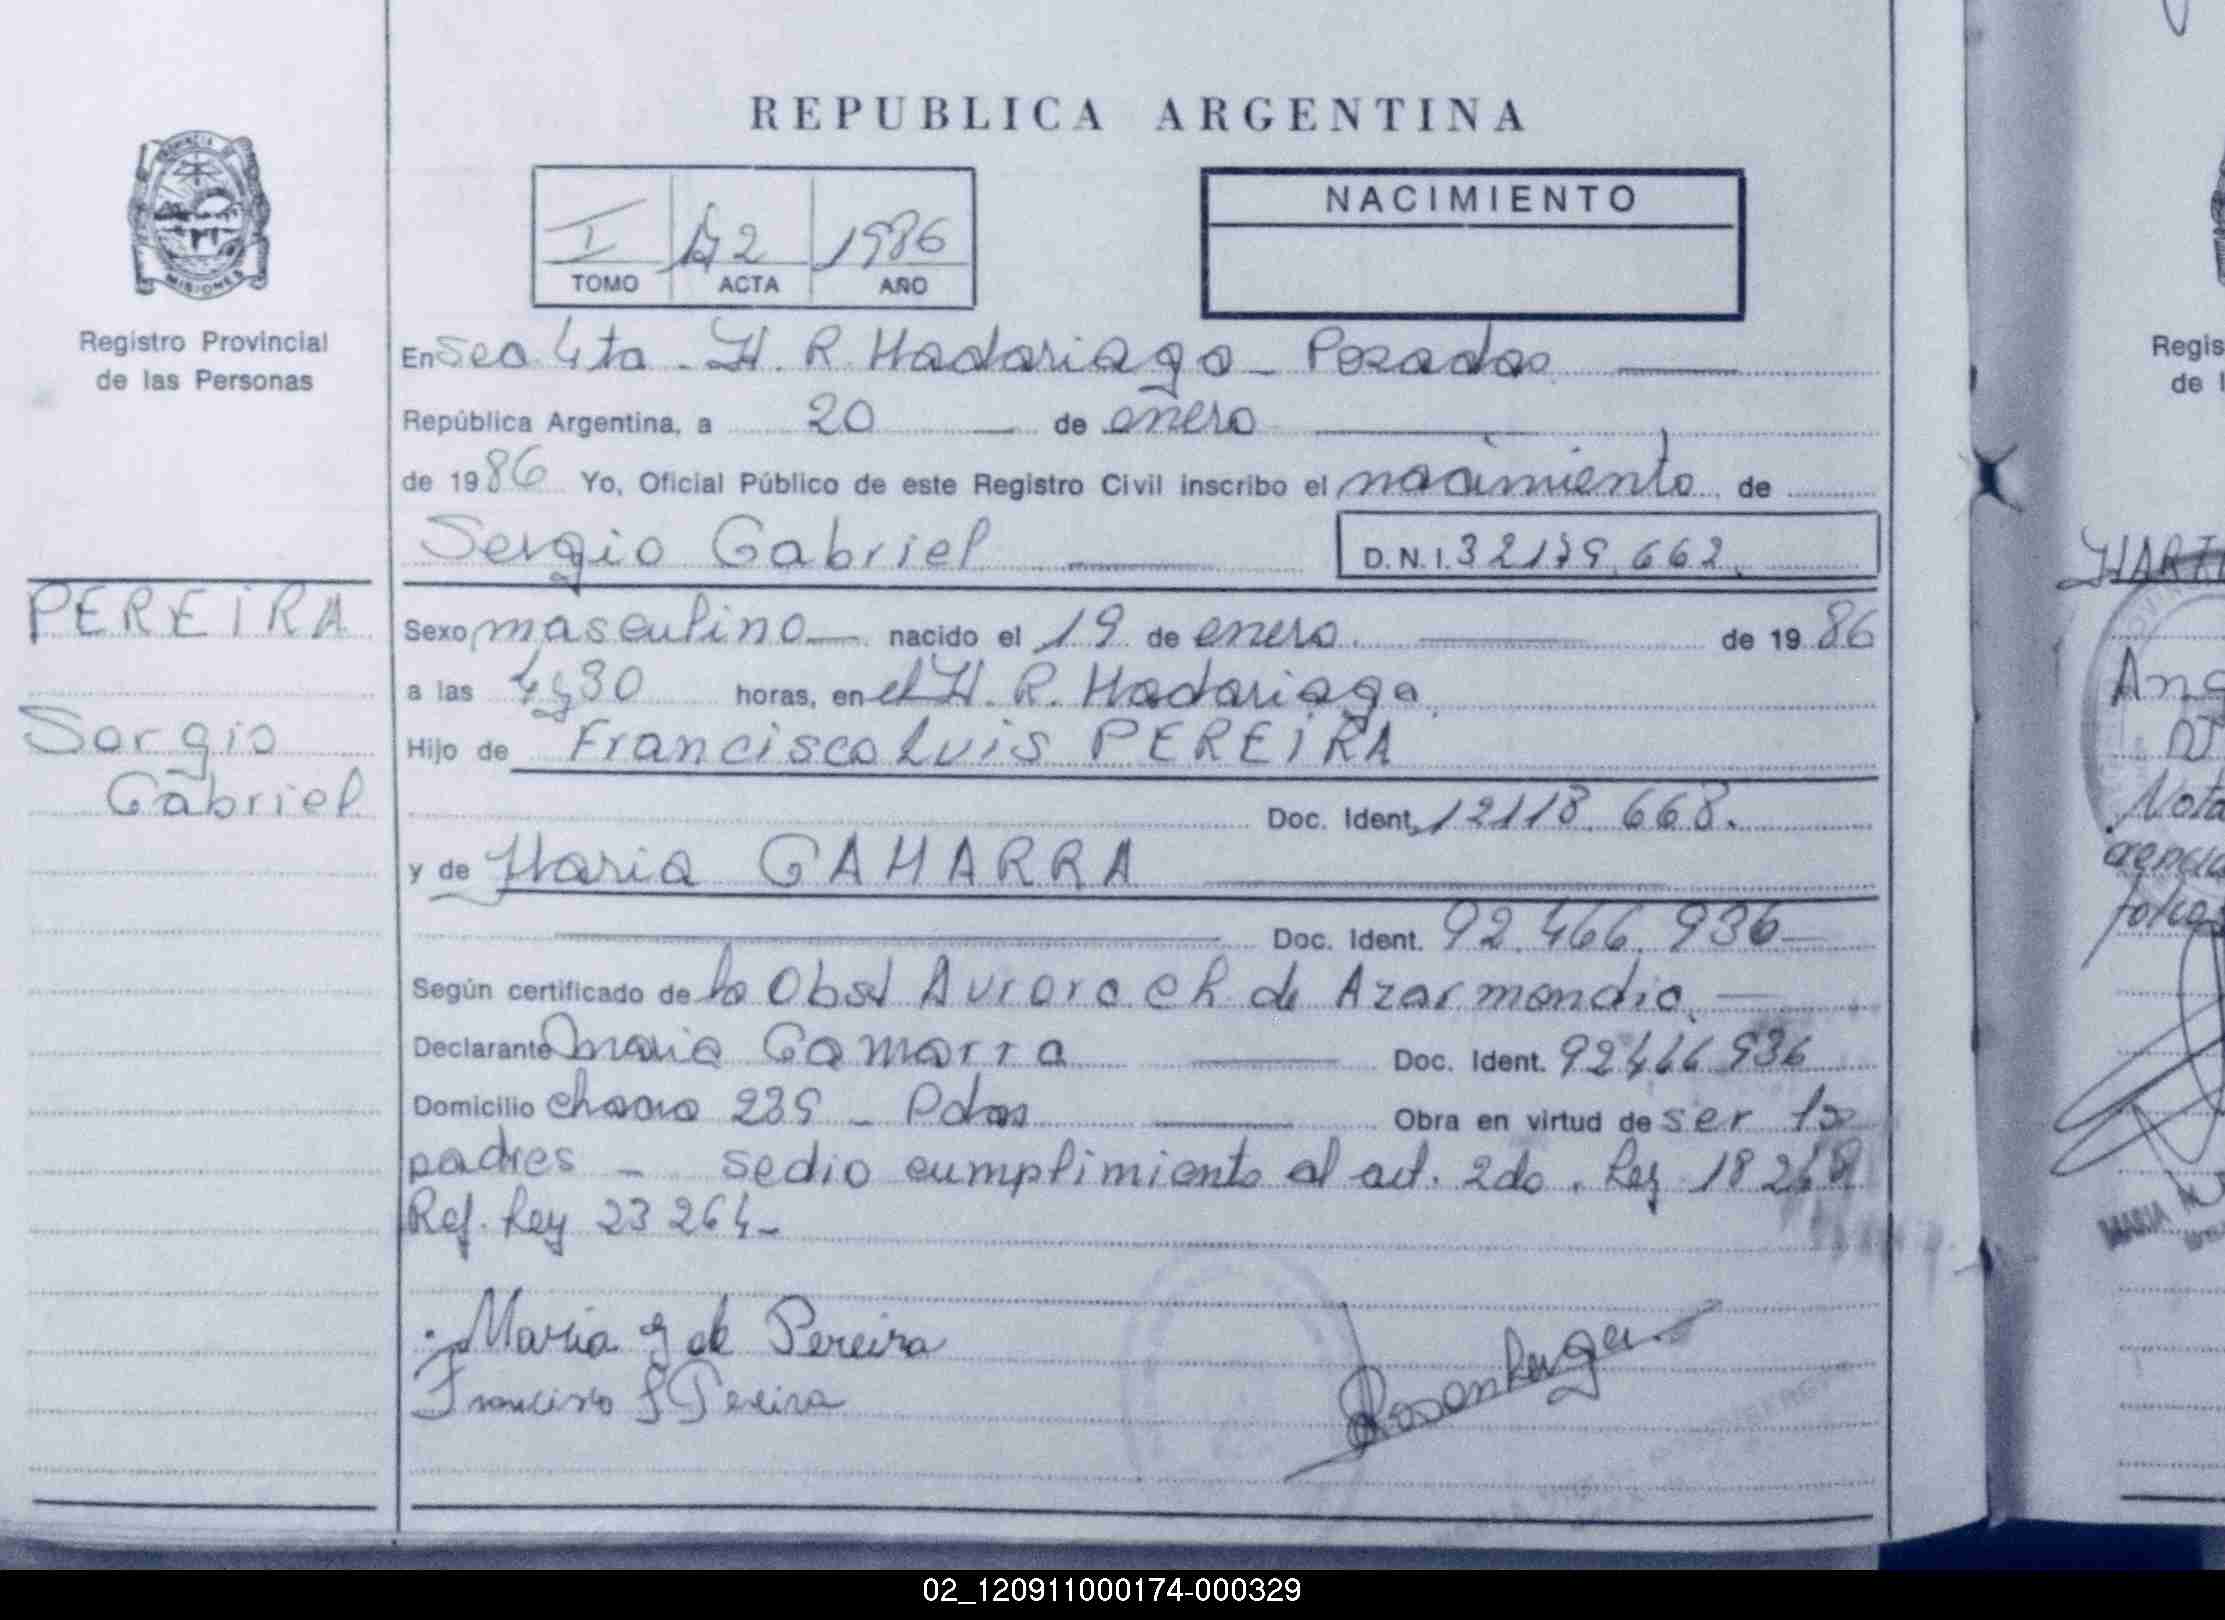 REPUBLICA ARGENTINA
PROVINCIA
MISIONES
Registro Provincial
de las Personas
I 1986
TOMO ACTA AÑO
NACIMIENTO
En Sec 4ta - H. R. Madariaga - Posadas
República Argentina, a 20 de enero
de 1986 Yo, Oficial Público de este Registro Civil inscribo el nacimiento de
Sergio Gabriel D.N.I. 32179.662.
PEREIRA
Sergio
Gabriel
Sexo masculino nacido el 19 de enero de 1986
a las 4y30 horas, en el H. R. Madariaga.
Hijo de Francisco Luis PEREIRA
Doc. Ident. 12118.668.
y de Maria GAMARRA
Doc. Ident. 92.466.936
Según certificado de la Obst Aurora ch de Azarmendia.
Declarante Maria Gamarra Doc. Ident. 92466936
Domicilio chacra 239 - Pdas Obra en virtud de ser los
padres - Sedio cumplimiento al art. 2do. Ley 18248
Ref. Ley 23264-
Maria G de Pereira
Francisco L Pereira
Rosenberger
Regis
de l
Ang
Nota
MARIA
02_120911000174-000329